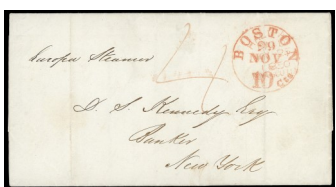 Europa Steamer
BOSTON
NOV
10 cts
D. S. Kennedy Esq
Banker
New York